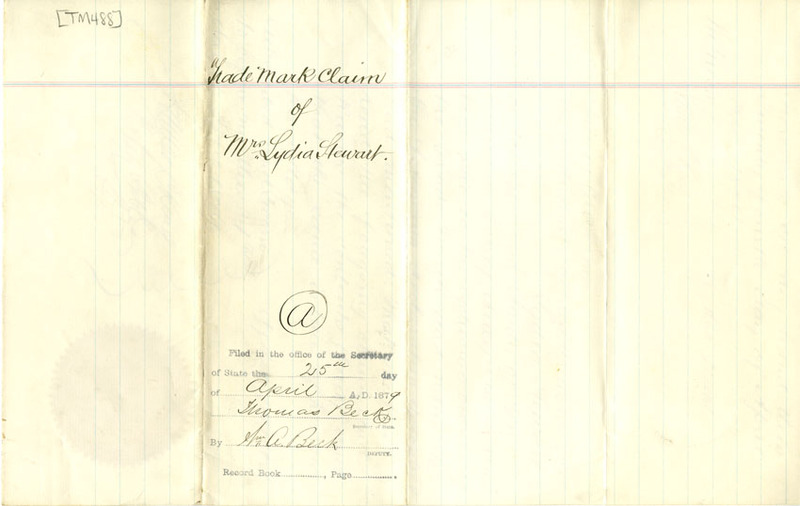 [TM488]
Trade Mark Claim
of
Mrs Lydia Stewart.
a
Filed in the office of the Secretary
of State the 25th day
of April A, D. 1879
Thomas Beck
Secretary of State.
By Wm A. Beck
DEPUTY.
Record Book ............, Page ............